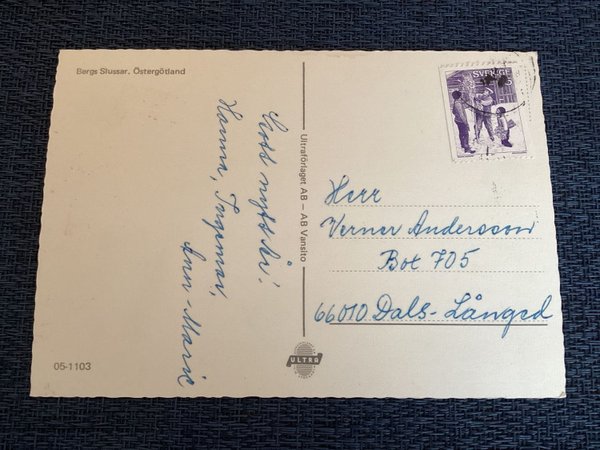 Bergs Slussar. Östergötland
Gott nytt år!
Hanna, Ingemar,
Ann-Marie
Ultraförlaget AB – AB Vansito
SVERIGE
Herr
Verner Andersson
Box 705
66010 Dals-Långed
ULTRA
05-1103